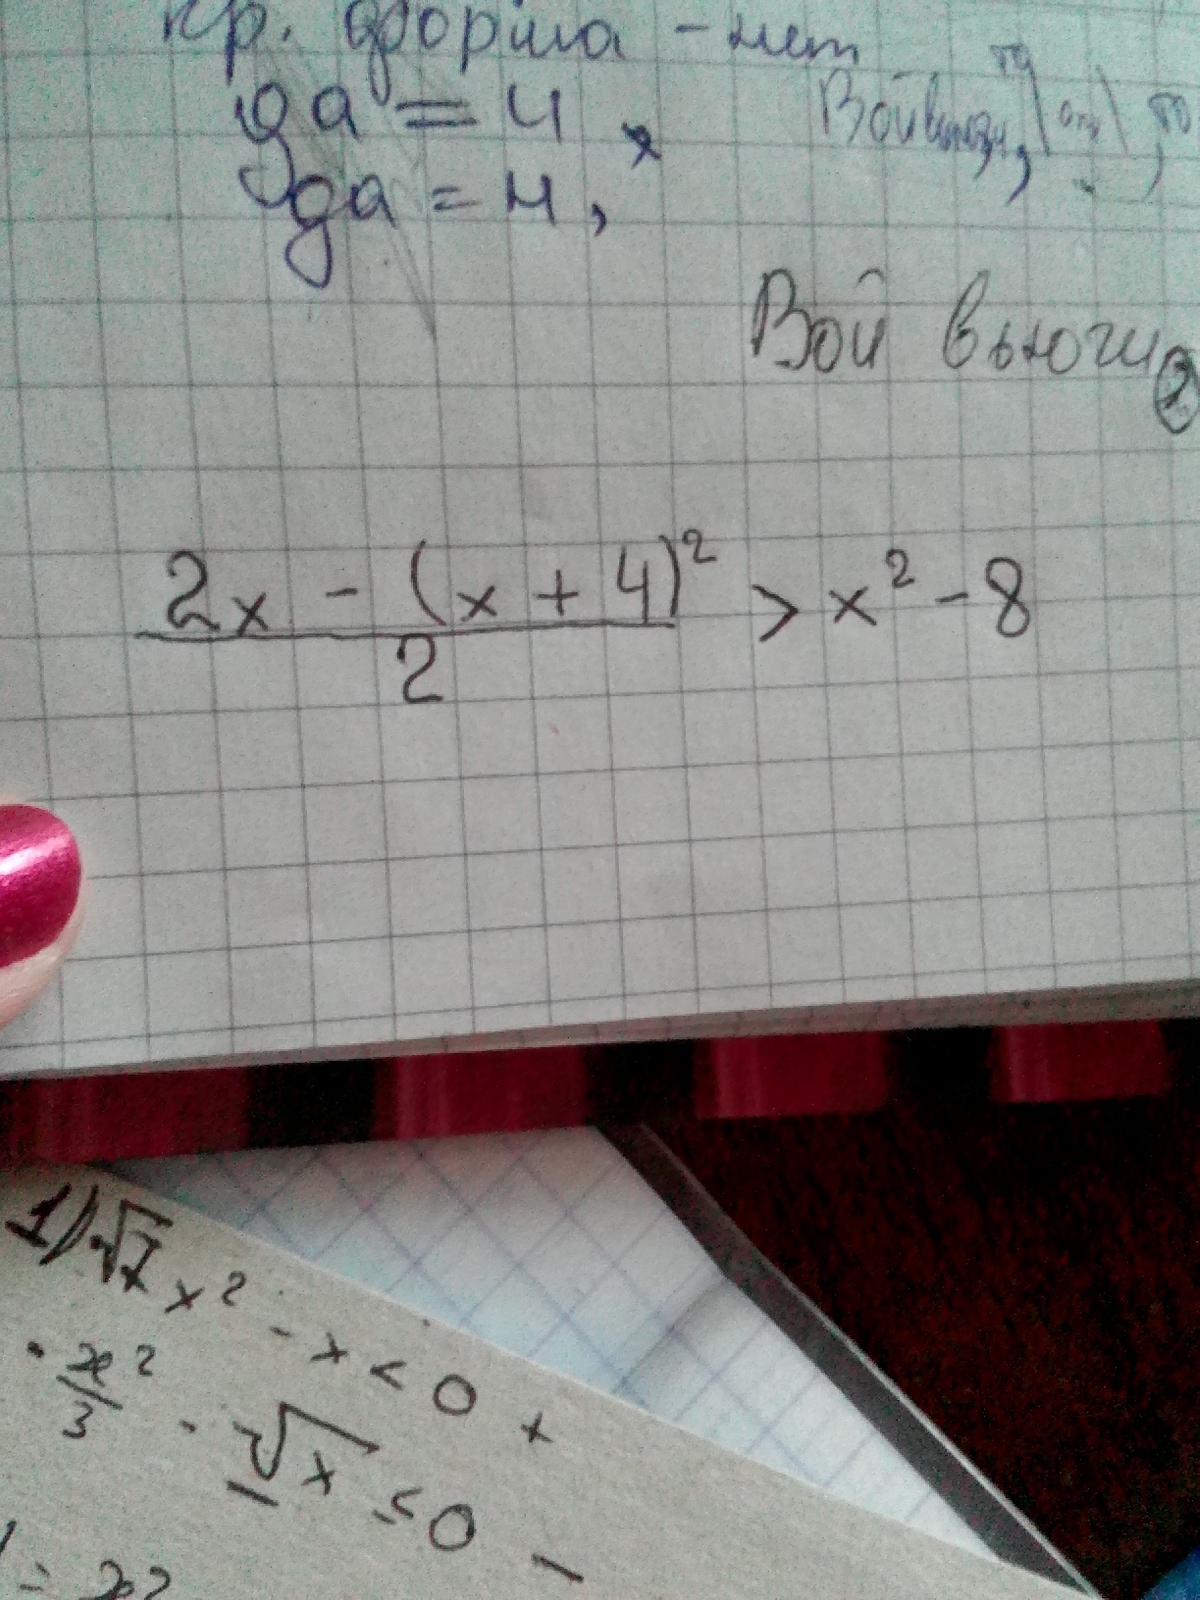 кр. форма - нет
да = ч
да = н,
Вой вьюги,
2x - (x + 4)² / 2 > x² - 8
1) √7 x² - x < 0 +
x²/3 · √x ≤ 0 -